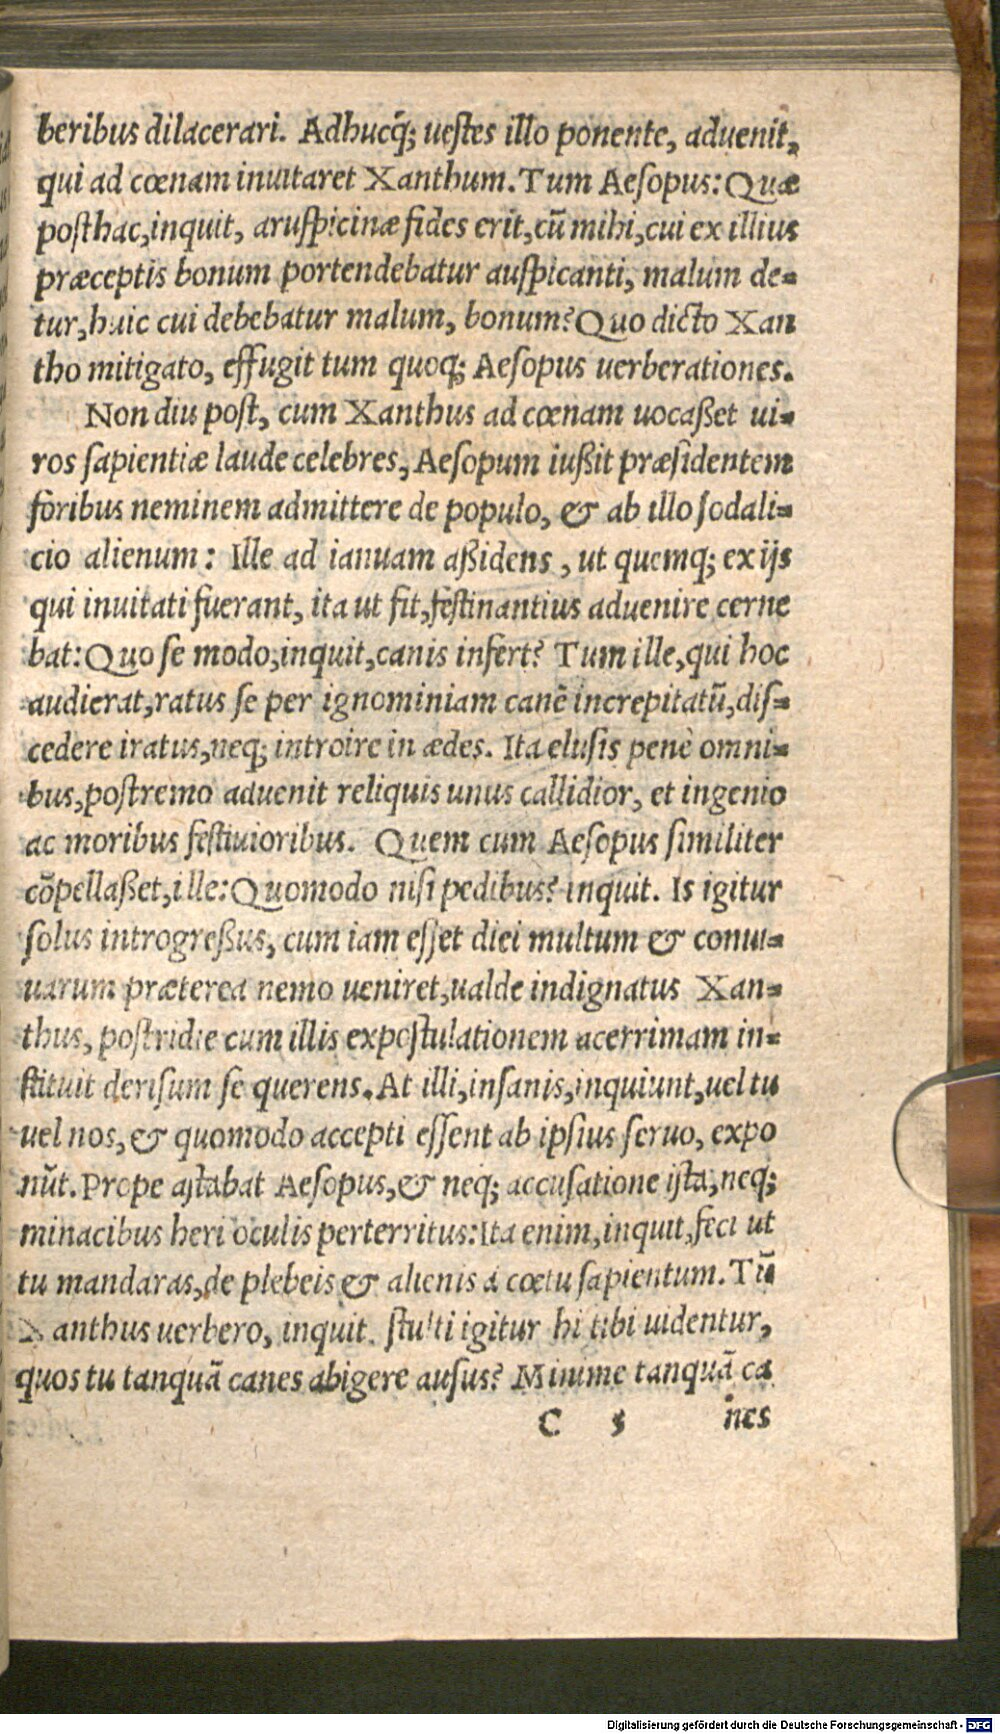 beribus dilacerari. Adhucq̃; uestes illo ponente, aduenit,
qui ad cœnam inuitaret Xanthum. Tum Aesopus: Quæ
posthac, inquit, aruspicinæ fides erit, cũ mihi, cui ex illius
præceptis bonum portendebatur auspicanti, malum de=
tur, huic cui debebatur malum, bonum? Quo dicto Xan
tho mitigato, effugit tum quoq; Aesopus uerberationes.
Non diu post, cum Xanthus ad cœnam uocaßet ui=
ros sapientiæ laude celebres, Aesopum iußit præsidentem
foribus neminem admittere de populo, & ab illo sodali=
cio alienum: Ille ad ianuam aßidens, ut quemq; ex ijs
qui inuitati fuerant, ita ut fit, festinantius aduenire cerne
bat: Quo se modo, inquit, canis infert? Tum ille, qui hoc
audierat, ratus se per ignominiam canẽ increpitatũ, dis=
cedere iratus, neq; introire in ædes. Ita elusis penè omni=
bus, postremo aduenit reliquis unus callidior, et ingenio
ac moribus festiuioribus. Quem cum Aesopus similiter
cõpellaßet, ille: Quomodo nisi pedibus? inquit. Is igitur
solus introgreßus, cum iam esset diei multum & conui=
uarum præterea nemo ueniret, ualde indignatus Xan=
thus, postridie cum illis expostulationem acerrimam in=
stituit derisum se querens. At illi, insanis, inquiunt, uel tu
uel nos, & quomodo accepti essent ab ipsius seruo, expo
nũt. Prope astabat Aesopus, & neq; accusatione ista, neq;
minacibus heri oculis perterritus: Ita enim, inquit, feci ut
tu mandaras, de plebeis & alienis à cœtu sapientum. Tũ
Xanthus uerbero, inquit. stulti igitur hi tibi uidentur,
quos tu tanquã canes abigere ausus? Minime tanquã ca
C 5 nes
Digitalisierung gefördert durch die Deutsche Forschungsgemeinschaft - DFG